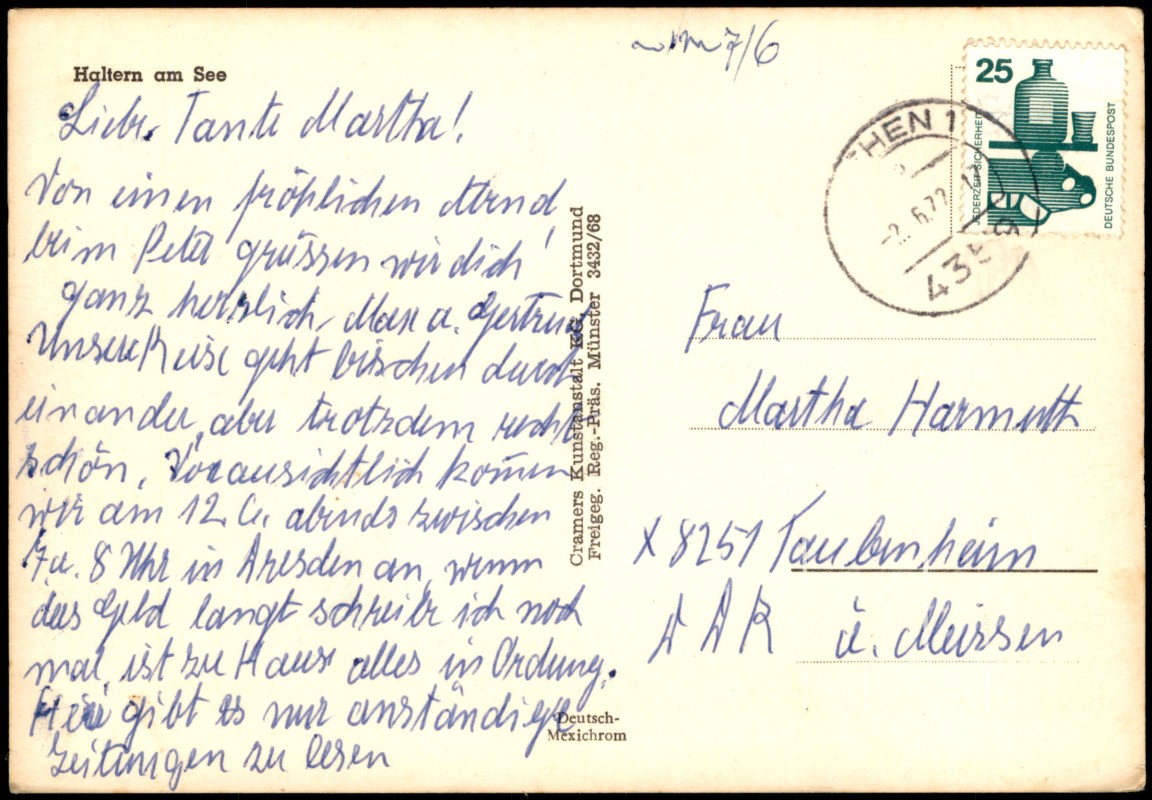 Haltern am See
Liebe Tante Martha!
Von einen fröhlichen Abend
beim Peter grüssen wir dich
ganz herzlich, Max u. Gertrud
Unsere Reise geht bischen durch
einander, aber trotzdem recht
schön. Voraussichtlich kom̄en
wir am 12. 6. abends zwischen
7 u. 8 Uhr in Dresden an, wenn
das Geld langt schreibe ich noch
mal, ist zu Hause alles in Ordung.
Hier gibt es nur anständige
Zeitungen zu lesen
Cramers Kunstanstalt KG. Dortmund
Freigeg. Reg.-Präs. Münster 3432/68
Deutsch-
Mexichrom
7/6
25
JEDERZEIT SICHERHEIT
DEUTSCHE BUNDESPOST
HEN 1
-2. 6. 72
435
Frau
Martha Harmuth
X 8251 Taubenheim
DDR ü. Meissen